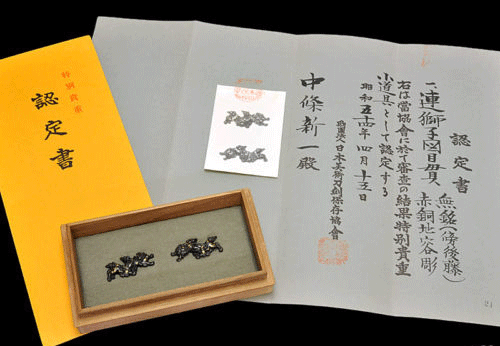 特別貴重
認定書
認定書
一、連獅子図目貫 無銘(傳後藤)
赤銅地容彫
右は當協會に於て審査の結果特別貴重
小道具として認定する
昭和五十四年四月十五日
財團法人日本美術刀剣保存協會
中條新一殿